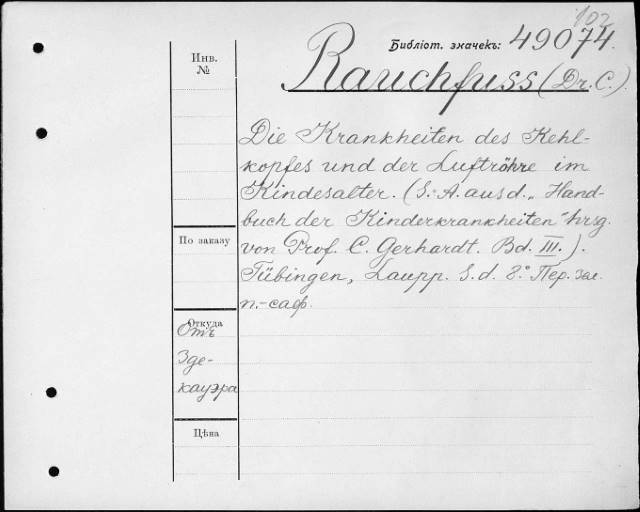 102
Библіот. значекъ: 49074.
Инв.
№
Rauchfuss (Dr. C.)
Die Krankheiten des Kehl-
kopfes und der Luftröhre im
Kindesalter. (S.-A. aus d. „Hand-
buch der Kinderkrankheiten" hrsg.
von Prof. C. Gerhardt. Bd. III.).
Tübingen, Laupp. S. d. 8.° Пер.
п.-саф.
По заказу
Откуда
Отъ
Зде-
кауэра
Цѣна